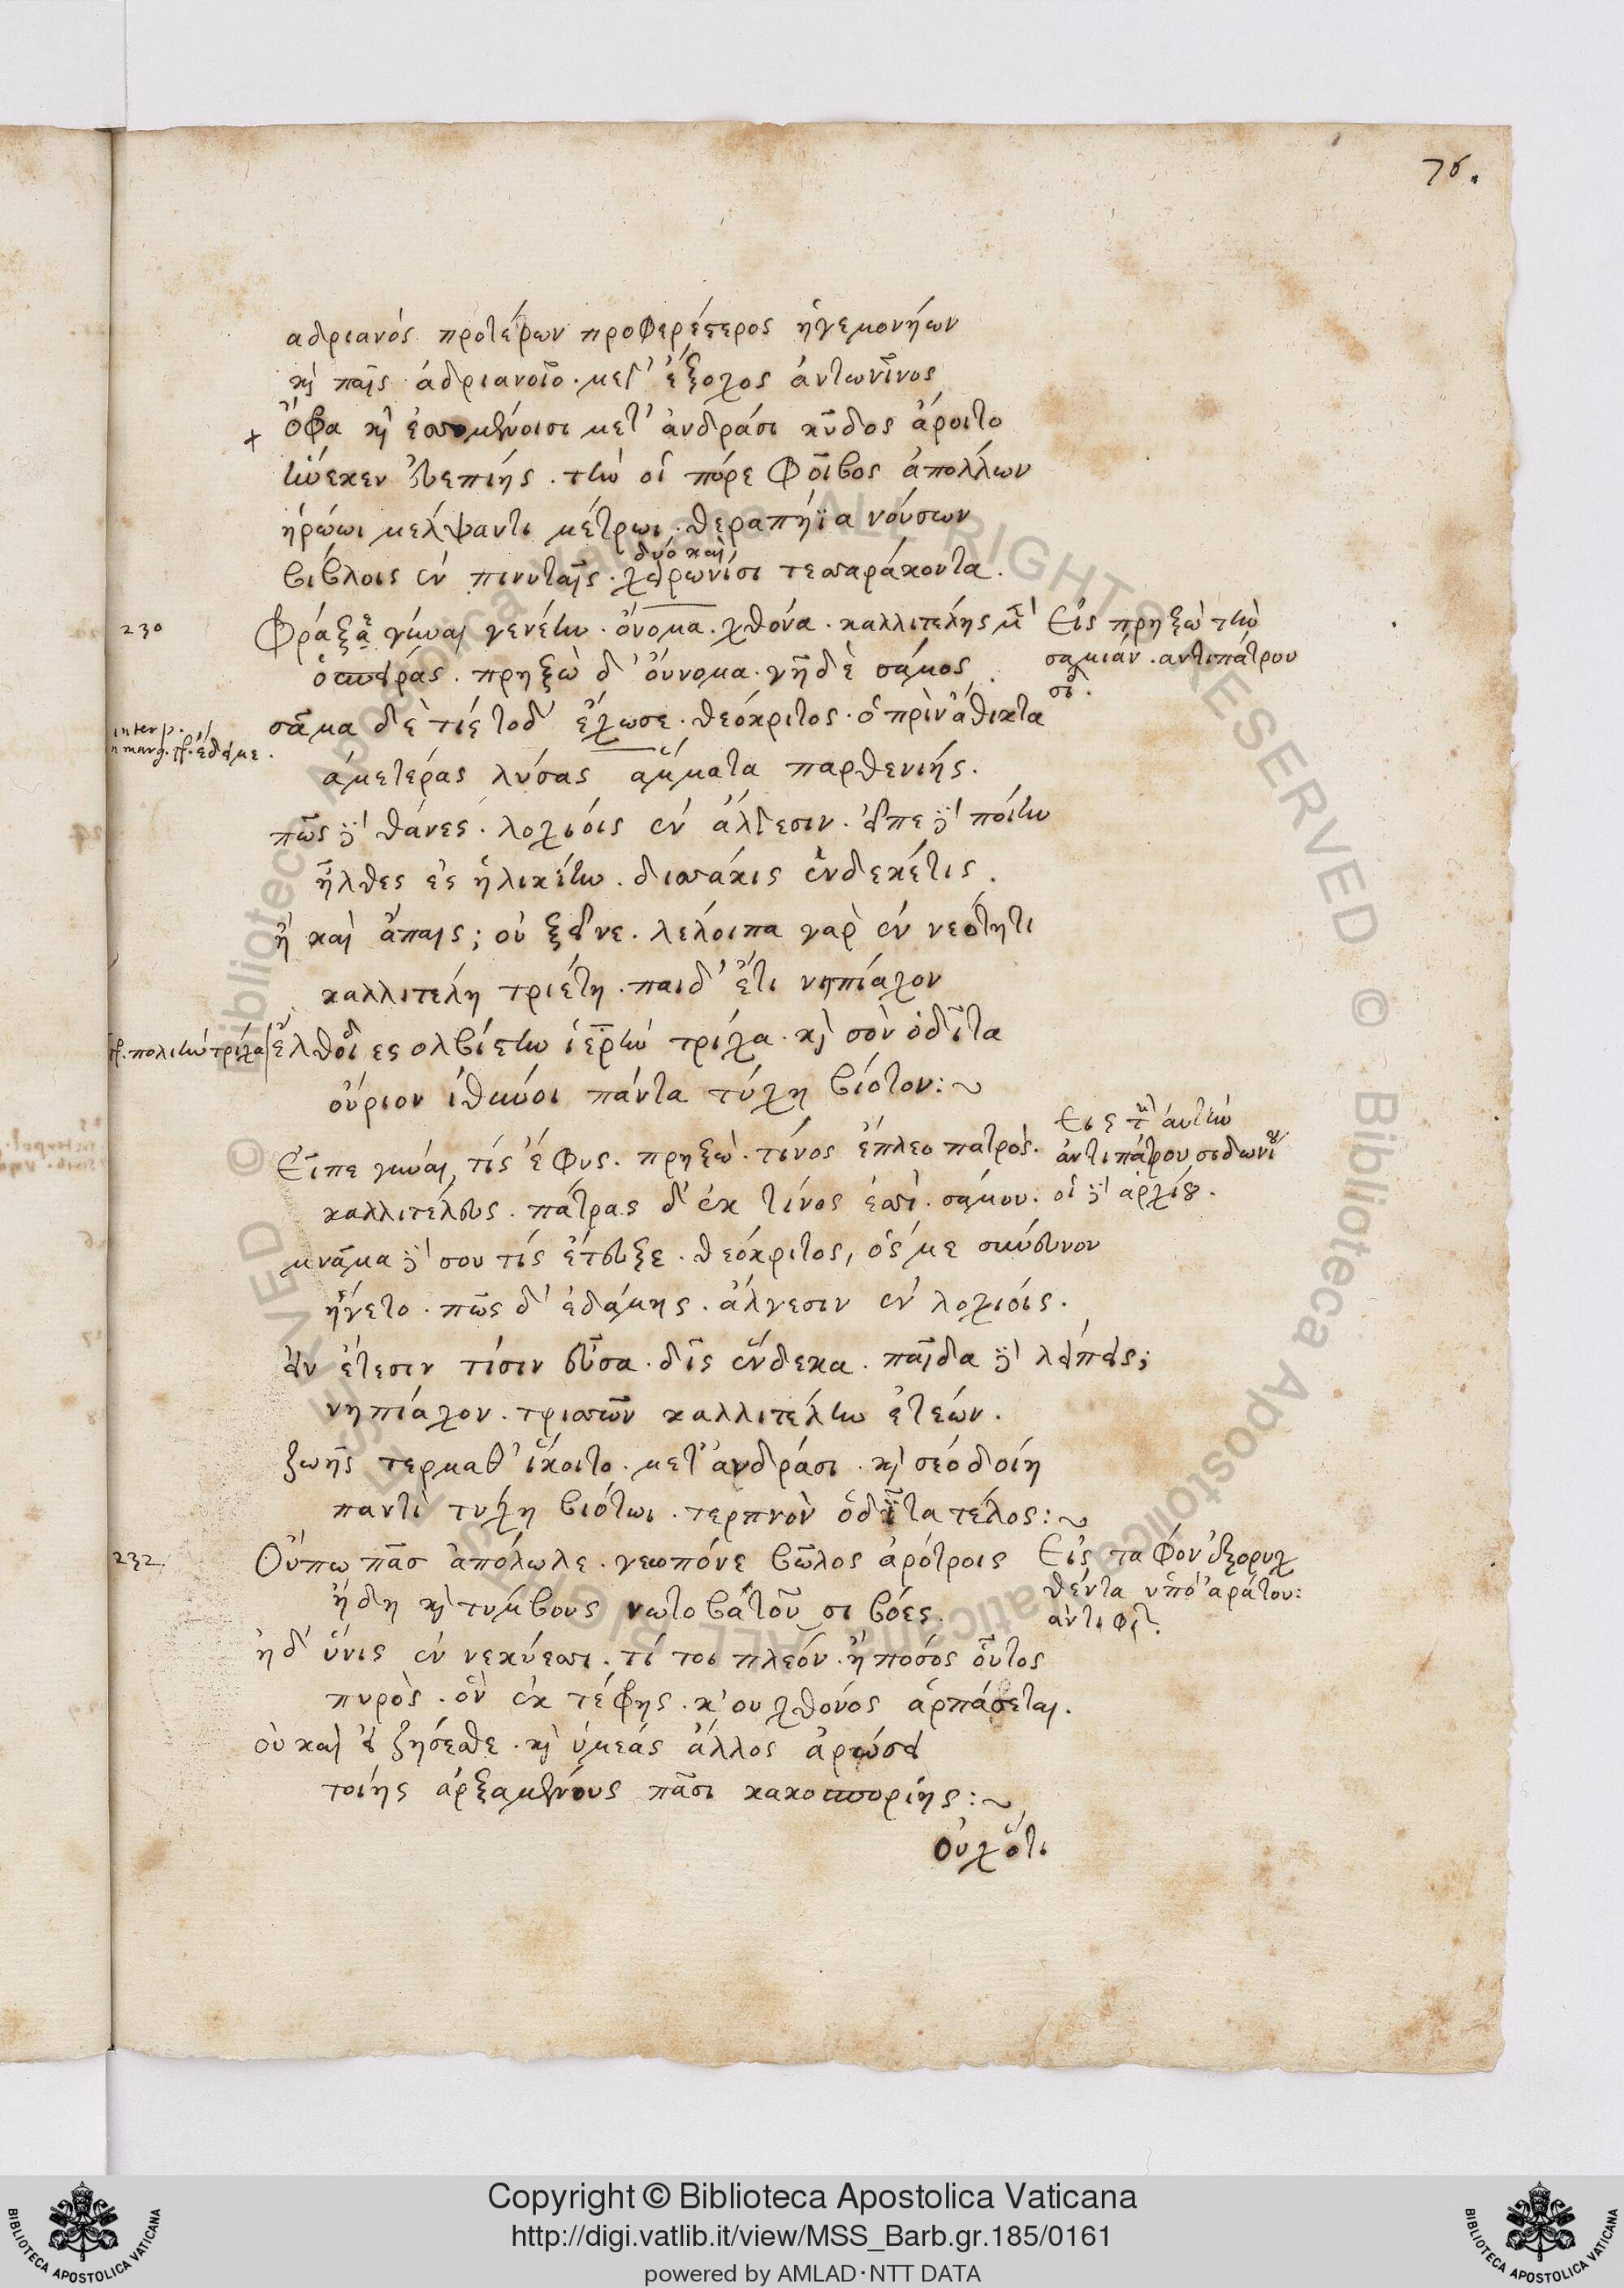 76.
αδριανός προτέρων προφερέστερος ἡγεμονήων
κὶ παῖς ἀδριανοῖο. μετ' ἔξοχος ἀντωνῖνος
+ ὄφρα κὶ ἐσσομένοισι μετ' ἀνδράσι κῦδος ἄροιτο
εἵνεκεν εὐεπίης. τὴν οἱ πόρε Φοῖβος ἀπολλων
ἡρώωι μέλψαντι μέτρωι. θεραπήϊα νούσων
δυό καὶ
βίβλοις ἐν πινυταῖς. χειρωνίσι τεσσαράκοντα.
230 Φράζε γύναι γενέην. ὄνομα. χθόνα. καλλιτέλης μὲν
Εἰς πρηξὼ τὴν
σαμίαν. αντιπάτρου
σιδ.
ὁ σπείρας. πρηξὼ δ' οὔνομα. γῆ δὲ σάμος.
σᾶμα δὲ τίς τόδ' ἔχωσε. θεόκριτος. ὁ πρὶν ἄθικτα
interp.
n marg. γρ. ἐδειμε.
ἁμετέρας λύσας ἅμματα παρθενίης.
πῶς δὲ θάνες. λοχίοις ἐν ἄλγεσιν. εἰπὲ δὲ ποίην
ἦλθες ἐς ἡλικίην. δισσάκις ἑνδεκέτις.
ἦ καὶ ἄπαις; οὐ ξεῖνε. λέλοιπα γαρ ἐν νεότητι
καλλιτέλη τριέτη. παιδ' ἔτι νηπίαχον
γρ. πολιὴν τρίχα
ἔλθοι ες ολβίστην ἱερὴν τρίχα. κὶ σὸν ὁδῖτα
οὔριον ἰθύνοι πάντα τύχη βίοτον:~
Εἶπε γύναι τίς ἔφυς. πρηξὼ. τίνος ἔπλεο πατρὸς.
Εις τὴν αὐτὴν
ἀντιπάτρου σιδωνίου
οἱ δὲ ἀρχίου.
καλλιτέλευς. πάτρας δ' ἐκ τίνος ἐσσὶ. σάμου.
μνᾶμα δὲ σου τίς ἔτευξε. θεόκριτος, ὅς με σύνευνον
ἤγετο. πῶς δ' ἐδάμης. ἄλγεσιν ἐν λοχίοις.
εἰν ἔτεσιν τίσιν εὖσα. δὶς ἕνδεκα. παῖδα δὲ λείπεις;
νηπίαχον. τρισσῶν καλλιτέλην ἐτέων.
ζωῆς τερμαθ' ἵκοιτο. μετ' ἀνδράσι. κὶ σέο δοίη
παντὶ τύχη βιότωι. τερπνὸν ὁδῖτα τέλος:~
232 Οὔπω πᾶσ ἀπόλωλε. γεωπόνε βῶλος ἀρότροις
Εἰς ταφον ἐξορυχ
θέντα ὑπό αράτου:
ἀντιφίλ.
ἤδη κὶ τύμβους νωτοβατοῦσι βόες.
ηδ' ὕνις ἐν νεκύεσσι. τί τοι πλεόν. ἢ πόσος οὗτος
πυρὸς. ὃν ἐκ τέφρης. κ' ου χθονός ἁρπάσεται.
οὐ καὶ εἰ ζήσεσθε. κὶ ὑμέας ἄλλος ἀρώσει
τοίης ἀρξαμένους πᾶσι κακοσπορίης:~
οὐχ ὅτι
Copyright © Biblioteca Apostolica Vaticana
http://digi.vatlib.it/view/MSS_Barb.gr.185/0161
powered by AMLAD·NTT DATA